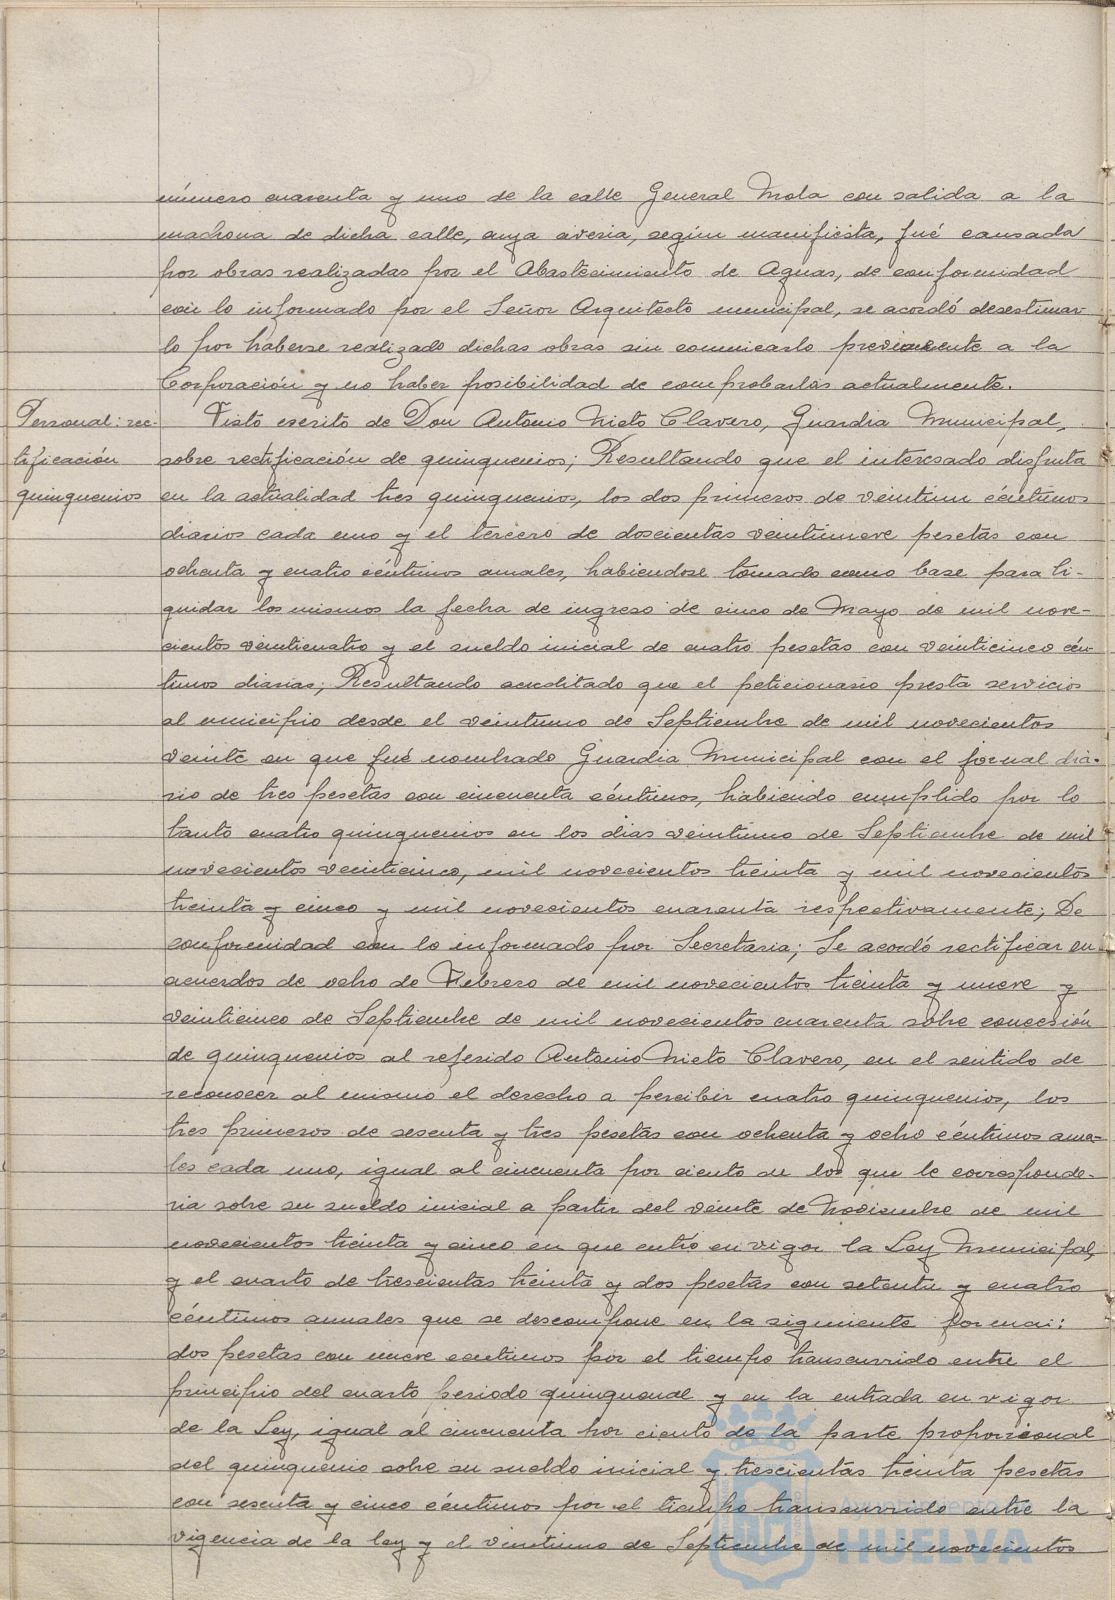 número cuarenta y uno de la calle General Mola con salida a la
machona de dicha calle, cuya averia, según manifiesta, fué causada
por obras realizadas por el Abastecimiento de Aguas, de conformidad
con lo informado por el Señor Arquitecto municipal, se acordó desestimar
lo por haberse realizado dichas obras sin comunicarlo previamente a la
Corporación y no haber posibilidad de comprobarlas actualmente.
Personal: rec-
tificación
quinquenios
Visto escrito de Don Antonio Nieto Clavero, Guardia Municipal,
sobre rectificación de quinquenios; Resultando que el interesado disfruta
en la actualidad tres quinquenios, los dos primeros de veintiun céntimos
diarios cada uno y el tercero de doscientas veintinueve pesetas con
ochenta y cuatro céntimos anuales, habiendose tomado como base para li-
quidar los mismos la fecha de ingreso de cinco de Mayo de mil nove-
cientos veinticuatro y el sueldo inicial de cuatro pesetas con veinticinco cén-
timos diarias; Resultando acreditado que el peticionario presta servicios
al municipio desde el veintiuno de Septiembre de mil novecientos
veinte en que fué nombrado Guardia Municipal con el jornal dia-
rio de tres pesetas con cincuenta céntimos, habiendo cumplido por lo
tanto cuatro quinquenios en los dias veintiuno de Septiembre de mil
novecientos veinticinco, mil novecientos treinta y mil novecientos
treinta y cinco y mil novecientos cuarenta respectivamente; De
conformidad con lo informado por Secretaria; Se acordó rectificar en
acuerdos de ocho de Febrero de mil novecientos treinta y nueve y
veinticinco de Septiembre de mil novecientos cuarenta sobre concesión
de quinquenios al referido Antonio Nieto Clavero, en el sentido de
reconocer al mismo el derecho a percibir cuatro quinquenios, los
tres primeros de sesenta y tres pesetas con ochenta y ocho céntimos anua-
les cada uno, igual al cincuenta por ciento de los que le corresponde-
ria sobre su sueldo inicial a partir del veinte de Noviembre de mil
novecientos treinta y cinco en que entró en vigor la Ley Municipal,
y el cuarto de trescientas treinta y dos pesetas con setenta y cuatro
céntimos anuales que se descompone en la siguiente forma:
dos pesetas con nueve centimos por el tiempo transcurrido entre el
principio del cuarto periodo quinquenal y en la entrada en vigor
de la Ley, igual al cincuenta por ciento de la parte proporcional
del quinquenio sobre su sueldo inicial y trescientas treinta pesetas
con sesenta y cinco céntimos por el tiempo transcurrido entre la
vigencia de la ley y el veintiuno de Septiembre de mil novecientos
Ayuntamiento de
HUELVA